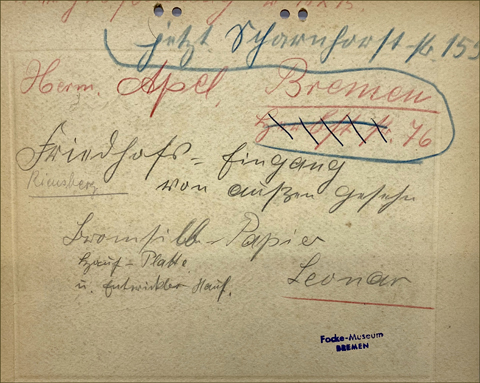 jetzt Scharnhorst-str. 155
Herm. Apel, Bremen
76
Friedhofs-Eingang
Riensberg
von außen gesehn
Bromsilb-Papier
Hauf-Platte.
u. Entwickler Hauf.
Leonar
Focke-Museum
BREMEN